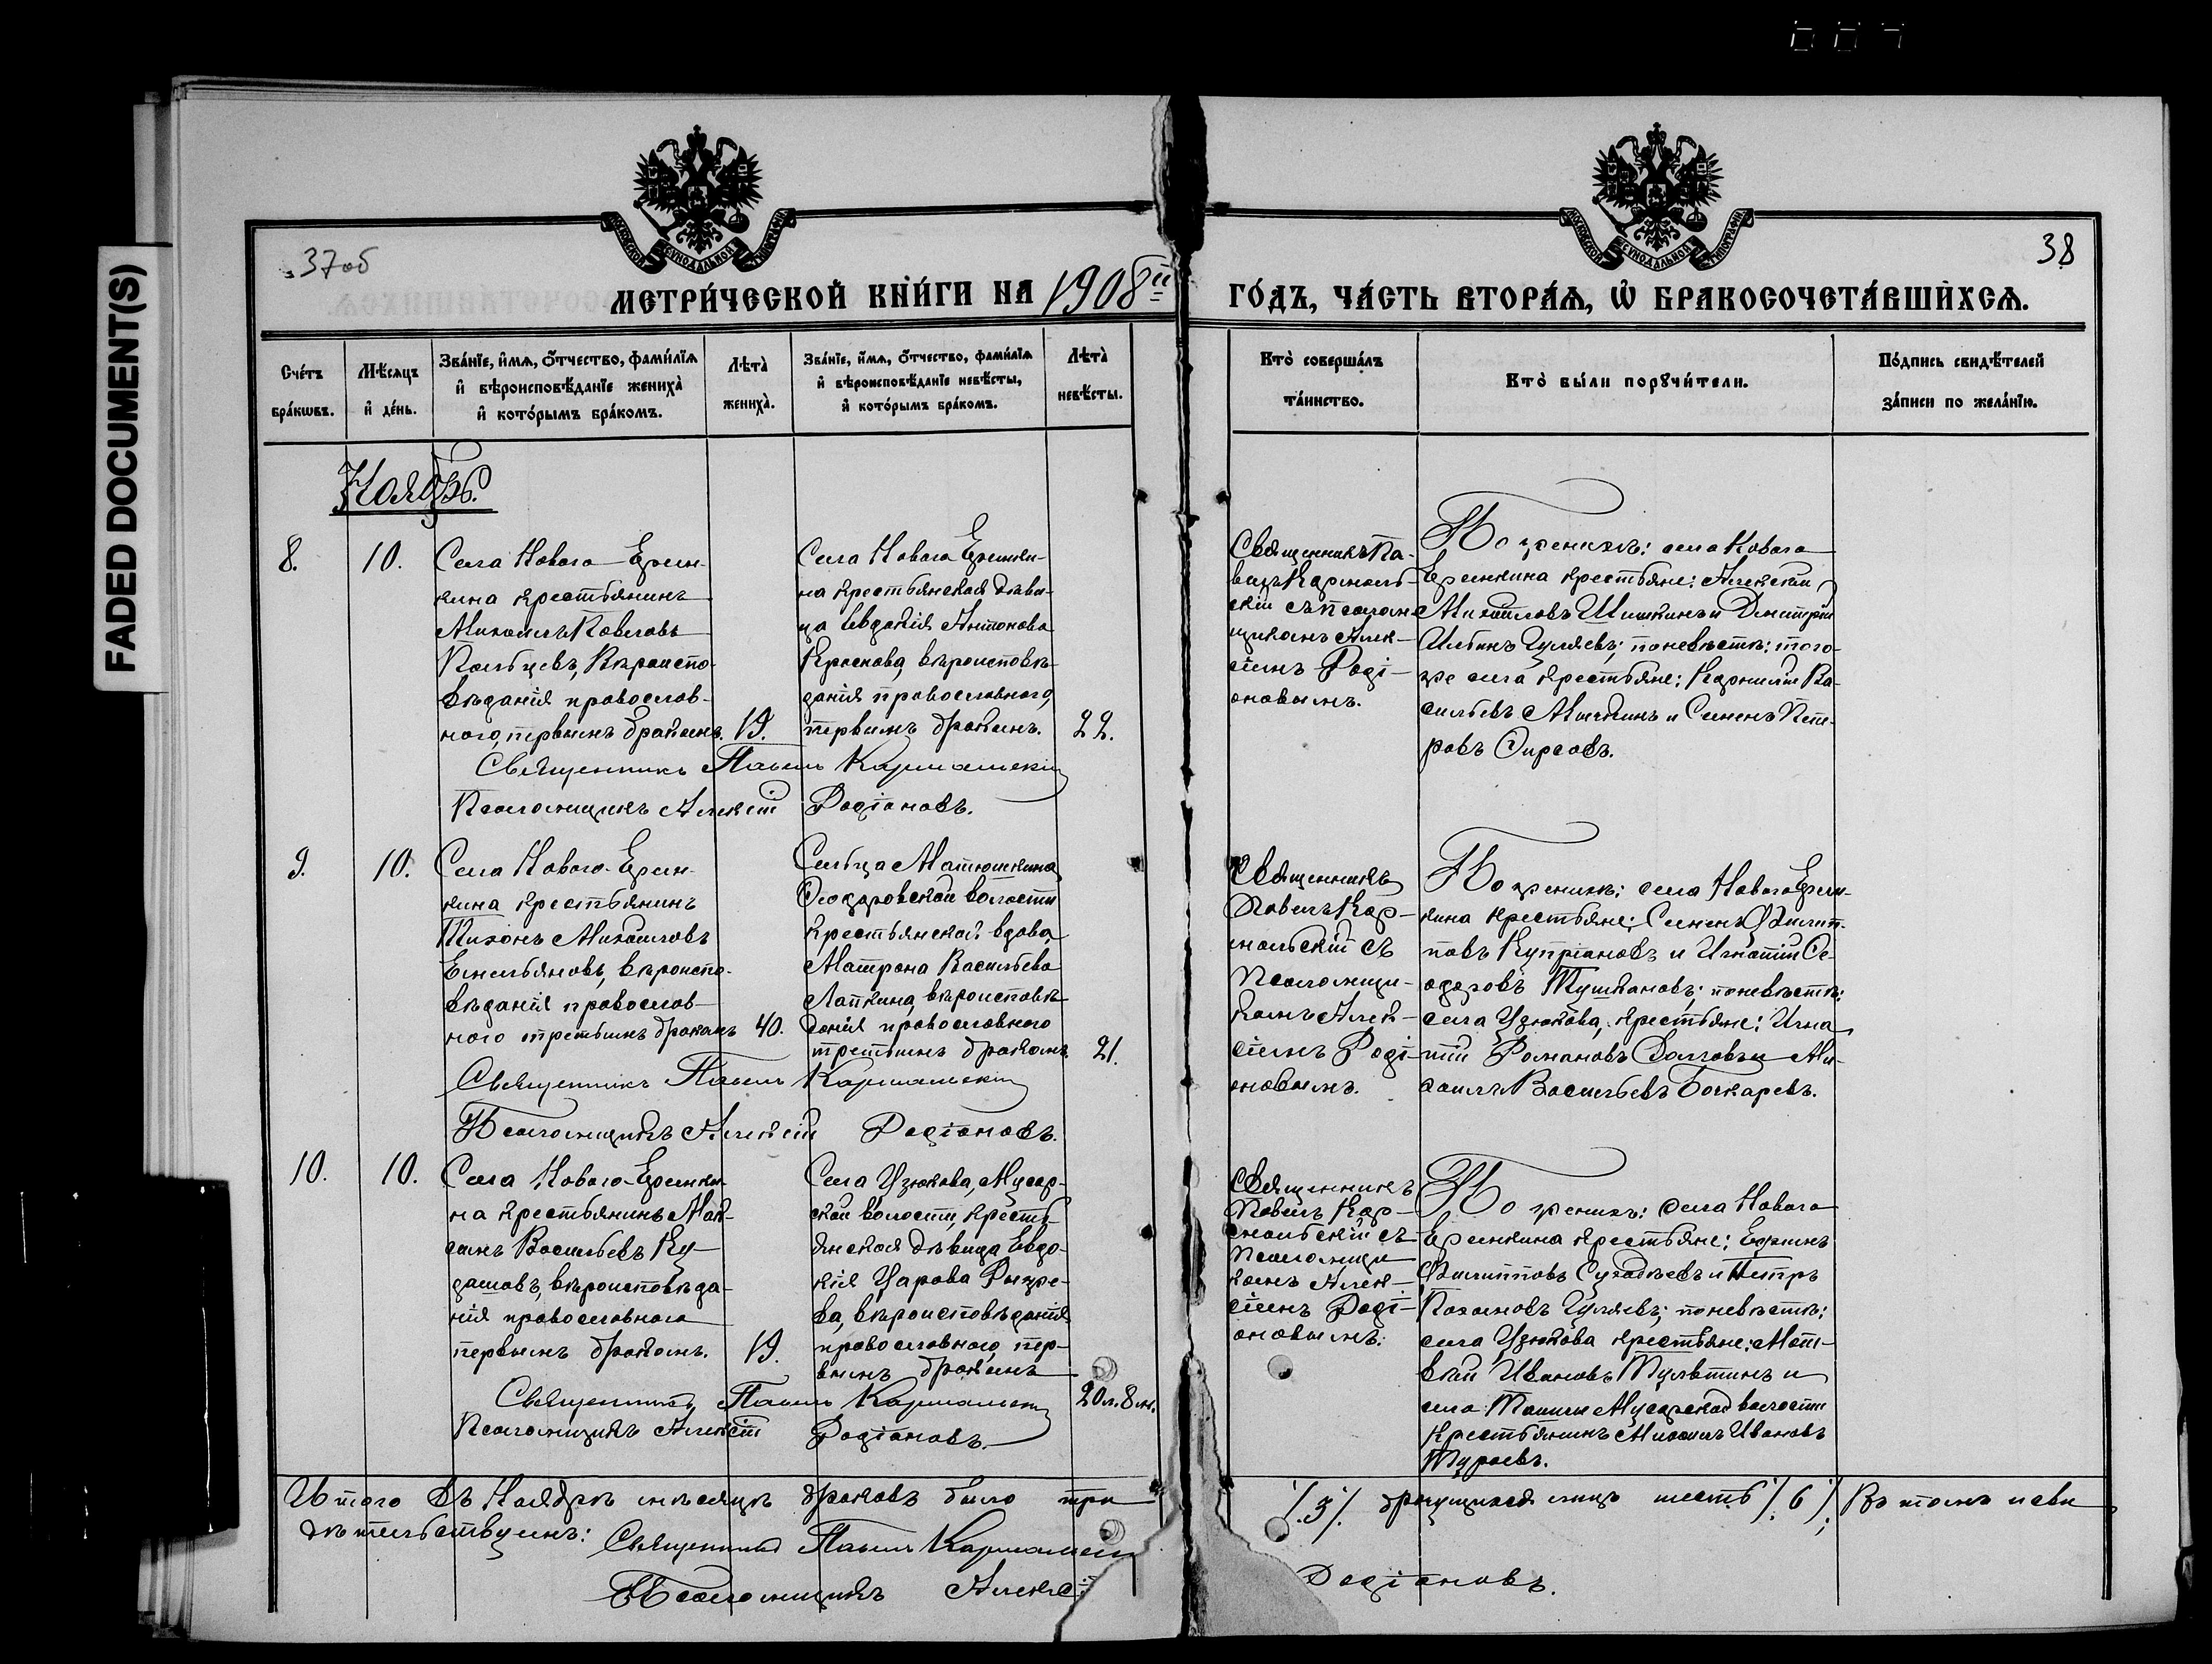 FADED DOCUMENT(S)
37об
38
МЕТРИ́ЧЕСКОЙ КНИ́ГИ НА 1908й
ГО́ДЪ, ЧА́СТЬ ВТОРА́Я, Ѡ БРАКОСОЧЕТА́ВШИХСЯ.
Сче́тъ бра́кѡвъ.
Мѣ́сяцъ и де́нь.
Зва́нїе, и́мя, ѻ́тчество, фами́лїя и вѣроисповѣ́данїе жениха̀ и кото́рымъ бра́комъ.
Лѣта̀ жениха̀.
Зва́нїе, и́мя, ѻ́тчество, фами́лїя и вѣроисповѣ́данїе невѣ́сты, и кото́рымъ бра́комъ.
Лѣта̀ невѣ́сты.
Кто̀ соверша́лъ та́инство.
Кто̀ бы́ли порꙋчи́тели.
По́дпись свидѣ́телей за́писи по жела́нїю.
Ноябрь.
8.
10.
Села Новаго Ерем-
кина крестьянинъ
Михаилъ Павловъ
Пальцевъ, вѣроиспо-
вѣданія православ-
наго, первымъ бракомъ.
19.
Села Новаго Еремки-
на крестьянская дѣви-
ца Евдокія Антонова
вѣроисповѣ-
данія православнаго,
первымъ бракомъ.
22.
Священникъ Па-
велъ Кармаль-
скій съ псалом-
щикомъ Алек-
сіемъ Роді-
оновымъ.
По женихѣ: села Новаго
Еремкина крестьяне: Алексѣй
Михайловъ Шишкинъ и Димитрій
Ильинъ Гуляевъ; по невѣстѣ: того-
же села крестьяне: Корнилій Ва-
сильевъ и Семенъ Пет-
ровъ Фирсовъ.
Священникъ Павелъ Кармальскій
Псаломщикъ Алексій Родіоновъ.
9.
10.
Села Новаго-Ерем-
кина крестьянинъ
Тихонъ Михайловъ
Емельяновъ, вѣроиспо-
вѣданія православ-
наго третьимъ бракомъ
40.
Сельца Матюшкина
Ѳеодоровской волости
крестьянская вдова
Матрона Васильева
Лапкина, вѣроисповѣ-
данія православнаго
третьимъ бракомъ.
21.
Священникъ
Павелъ Кар-
мальскій съ
псаломщи-
комъ Алек-
сіемъ Роді-
оновымъ.
По женихѣ: села Новаго Ерем-
кина крестьяне: Семенъ Филип-
повъ Купріановъ и Игнатій Ѳе-
одоровъ Тушкановъ; по невѣстѣ:
села Узюкова, крестьяне: Игна
тій Романовъ Долговъ и Ми-
хаилъ Васильевъ Бочкаревъ.
Священникъ Павелъ Кармальскій
Псаломщикъ Алексій Родіоновъ.
10.
10.
Села Новаго-Еремки-
на крестьянинъ Мак-
симъ Васильевъ Ку-
дашовъ, вѣроисповѣда-
нія православнаго
первымъ бракомъ.
19.
Села Узюкова, Мусор-
ской волости, кресть-
янская дѣвица Евдо-
кія Уарова Рыже-
ва, вѣроисповѣданія
православнаго, пер-
вымъ бракомъ
20 л. 8 м.
Священникъ
Павелъ Кар-
мальскій съ
псаломщи
комъ Алек-
сіемъ Роді-
оновымъ.
По женихѣ: села Новаго
Еремкина крестьяне: Ефимъ
Филипповъ и Петръ
Пахомовъ Гуляевъ; по невѣстѣ:
села Узюкова крестьяне: Мат-
вѣй Ивановъ и
села Ташлы Мусорской волости
крестьянинъ Михаилъ Ивановъ
Тураевъ.
Священникъ Павелъ Кармальскій
Псаломщикъ Алексій Родіоновъ.
Итого въ Ноябрѣ мѣсяцѣ браковъ было три /.3/. брачущихся лицъ шесть /.6/. Въ томъ и сви
дѣтельствуемъ: Священникъ Павелъ Кармальскій
Псаломщикъ Алексій Родіоновъ.